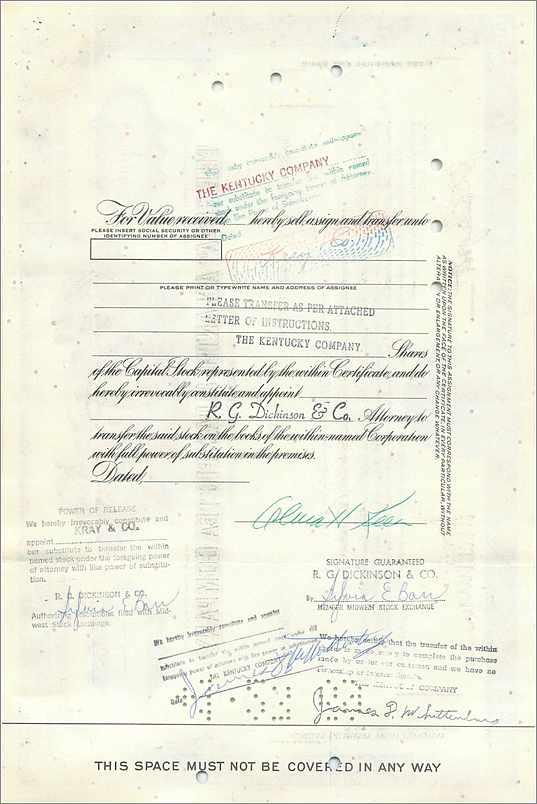 THE KENTUCKY COMPANY
For Value received, hereby sell, assign and transfer unto
PLEASE INSERT SOCIAL SECURITY OR OTHER
IDENTIFYING NUMBER OF ASSIGNEE
Dated
PLEASE PRINT OR TYPEWRITE NAME AND ADDRESS OF ASSIGNEE
PLEASE TRANSFER AS PER ATTACHED
LETTER OF INSTRUCTIONS.
THE KENTUCKY COMPANY
Shares
of the Capital Stock represented by the within Certificate, and do
hereby irrevocably constitute and appoint
R. G. Dickinson & Co. Attorney to
transfer the said stock on the books of the within-named Corporation
with full power of substitution in the premises.
Dated,
NOTICE: THE SIGNATURE TO THIS ASSIGNMENT MUST CORRESPOND WITH THE NAME
AS WRITTEN UPON THE FACE OF THE CERTIFICATE, IN EVERY PARTICULAR, WITHOUT
ALTERATION OR ENLARGEMENT, OR ANY CHANGE WHATEVER.
POWER OF RELEASE
We hereby irrevocably constitute and
KRAY & CO.
appoint
our substitute to transfer the within
named stock under the foregoing power
of attorney with like power of substitu-
tion.
R. G. DICKINSON & CO.
Sylvia E Barr
Authorized signatures filed with Mid-
west Stock Exchange.
SIGNATURE GUARANTEED
R. G. DICKINSON & CO.
By Sylvia E Barr
MEMBER MIDWEST STOCK EXCHANGE
We hereby irrevocably constitute and appoint
substitute to transfer the within named stock under the
foregoing power of attorney with like power of substitution
THE KENTUCKY COMPANY
Date
that the transfer of the within
to complete the purchase
made by us for our customer and we have no
THE KENTUCKY COMPANY
THIS SPACE MUST NOT BE COVERED IN ANY WAY